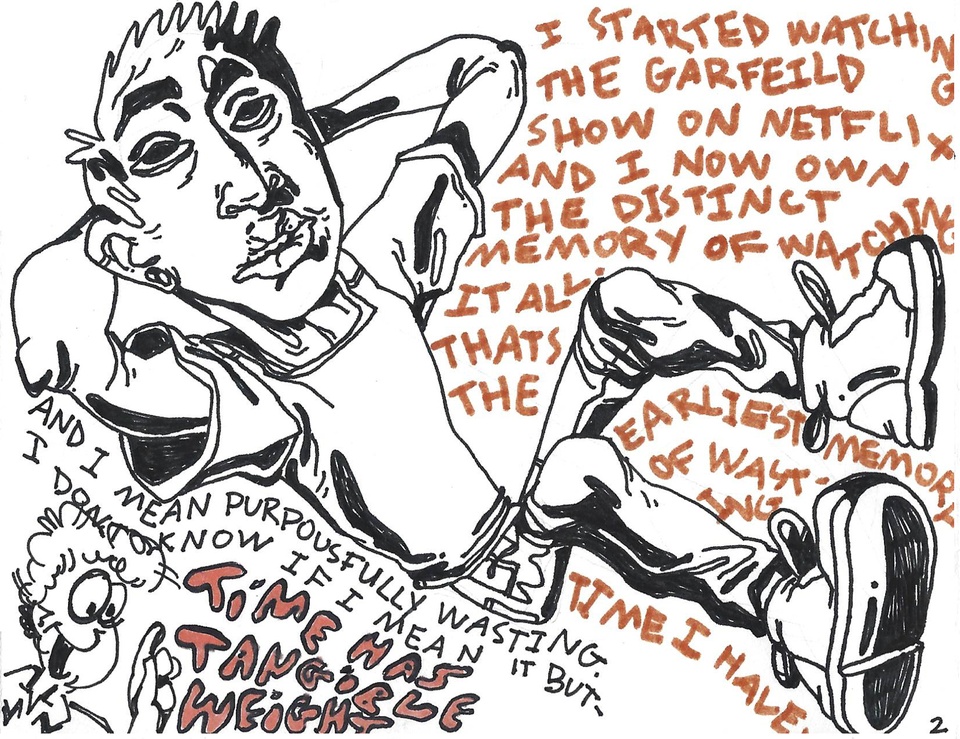 I STARTED WATCHING
THE GARFEILD
SHOW ON NETFLIX
AND I NOW OWN
THE DISTINCT
MEMORY OF WATCHING
IT ALL.
THATS
THE
EARLIEST MEMORY
OF WAST-
ING
TIME I HALE.
AND I MEAN PURPOUSFULLY WASTING.
I DONT KNOW IF I MEAN IT BUT-
TIME HAS
TANGIBLE
WEIGHT
2